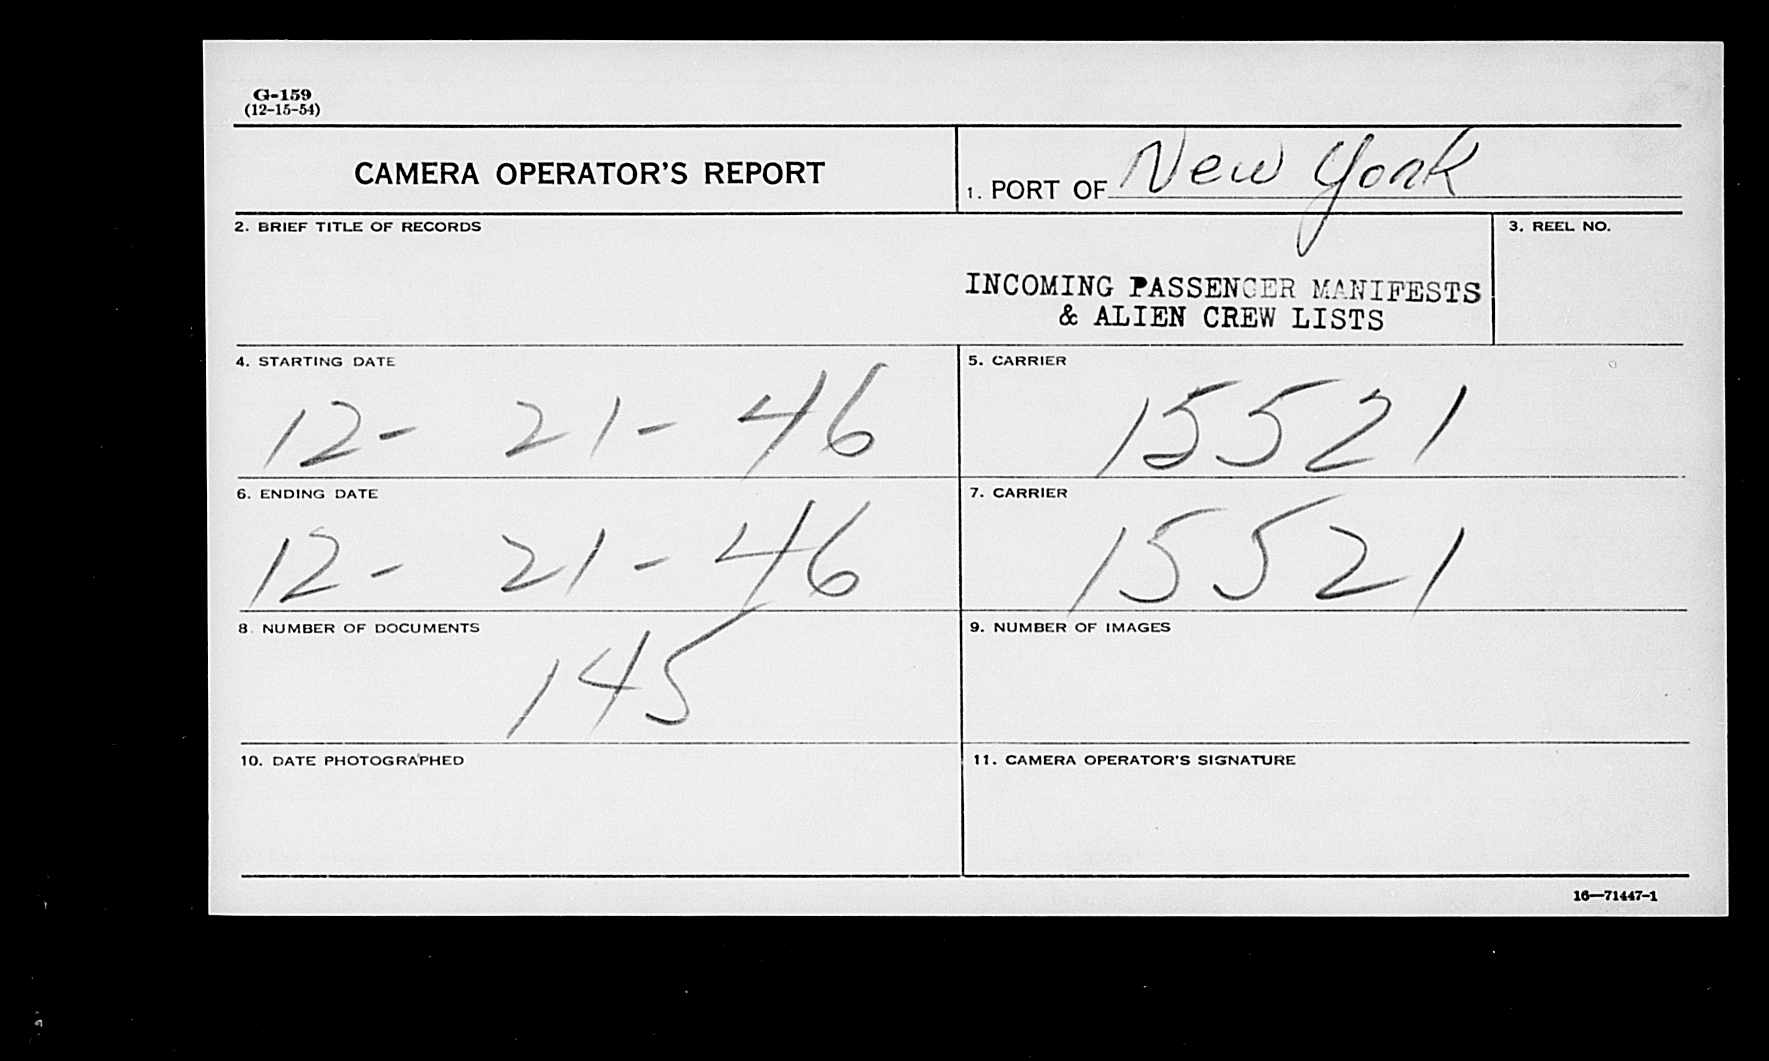 G-159
(12-15-54)
CAMERA OPERATOR'S REPORT
1. PORT OF New York
2. BRIEF TITLE OF RECORDS
3. REEL NO.
INCOMING PASSENGER MANIFESTS
& ALIEN CREW LISTS
4. STARTING DATE
5. CARRIER
12- 21- 46
15521
6. ENDING DATE
7. CARRIER
12- 21- 46
15521
8. NUMBER OF DOCUMENTS
9. NUMBER OF IMAGES
145
10. DATE PHOTOGRAPHED
11. CAMERA OPERATOR'S SIGNATURE
16—71447-1